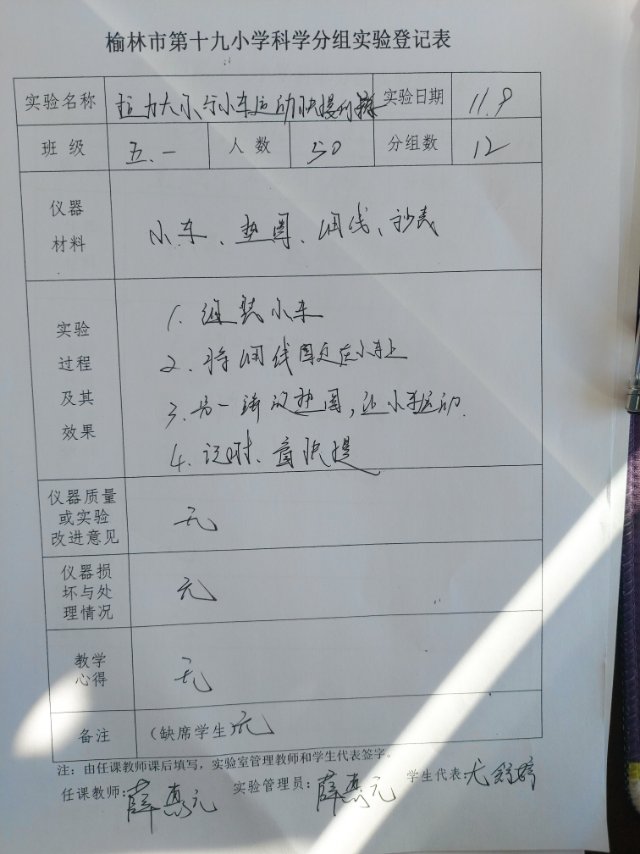 榆林市第十九小学科学分组实验登记表
实验名称 拉力大小与小车运动快慢 实验日期 11.9
班级 五.一 人数 50 分组数 12
仪器材料 小车、垫圈、细线、秒表
实验过程及其效果
1. 组装小车
2. 将细线固定在小车上
3. 另一端 垫圈,让小车运动.
4. 记时、看快慢
仪器质量或实验改进意见 无
仪器损坏与处理情况 无
教学心得 无
备注 (缺席学生 无
注:由任课教师课后填写,实验室管理教师和学生代表签字。
任课教师:薛 元 实验管理员:薛 元 学生代表:尤